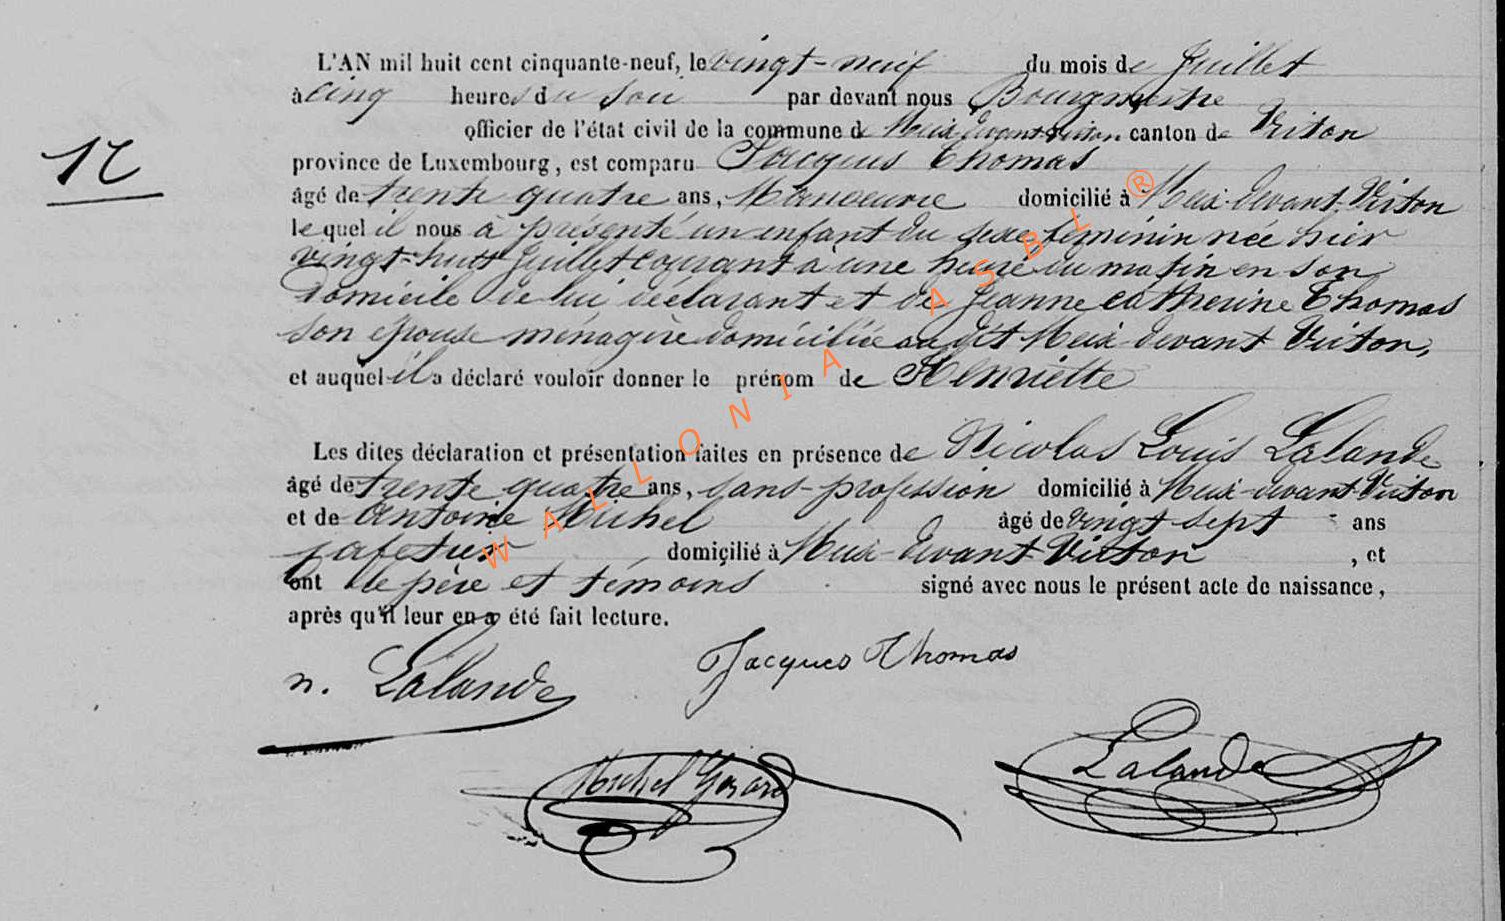 L'AN mil huit cent cinquante-neuf, le vingt-neuf du mois de Juillet
à cinq heures du soir par devant nous Bourgmestre
officier de l'état civil de la commune de Meix-devant-Virton canton de Virton
17
province de Luxembourg, est comparu Jacques Thomas
âgé de trente quatre ans, Manoeuvre domicilié à Meix-devant-Virton
le quel il nous a présenté un enfant du sexe féminin née hier
vingt-huit Juillet courant à une heure du matin en son
domicile de lui déclarant et de Jeanne Catherine Thomas
son épouse ménagère domiciliée au dit Meix-devant Virton,
et auquel il a déclaré vouloir donner le prénom de Henriette
Les dites déclaration et présentation faites en présence de Nicolas Louis Lalande
âgé de trente quatre ans, sans-profession domicilié à Meix-devant-Virton
et de Antoine Michel âgé de vingt-sept ans
domicilié à Meix-devant-Virton, et
ont le père et témoins signé avec nous le présent acte de naissance,
après qu'il leur en a été fait lecture.
n. Lalande Jacques Thomas
Michel Lalande
WALLONIA ASBL ®